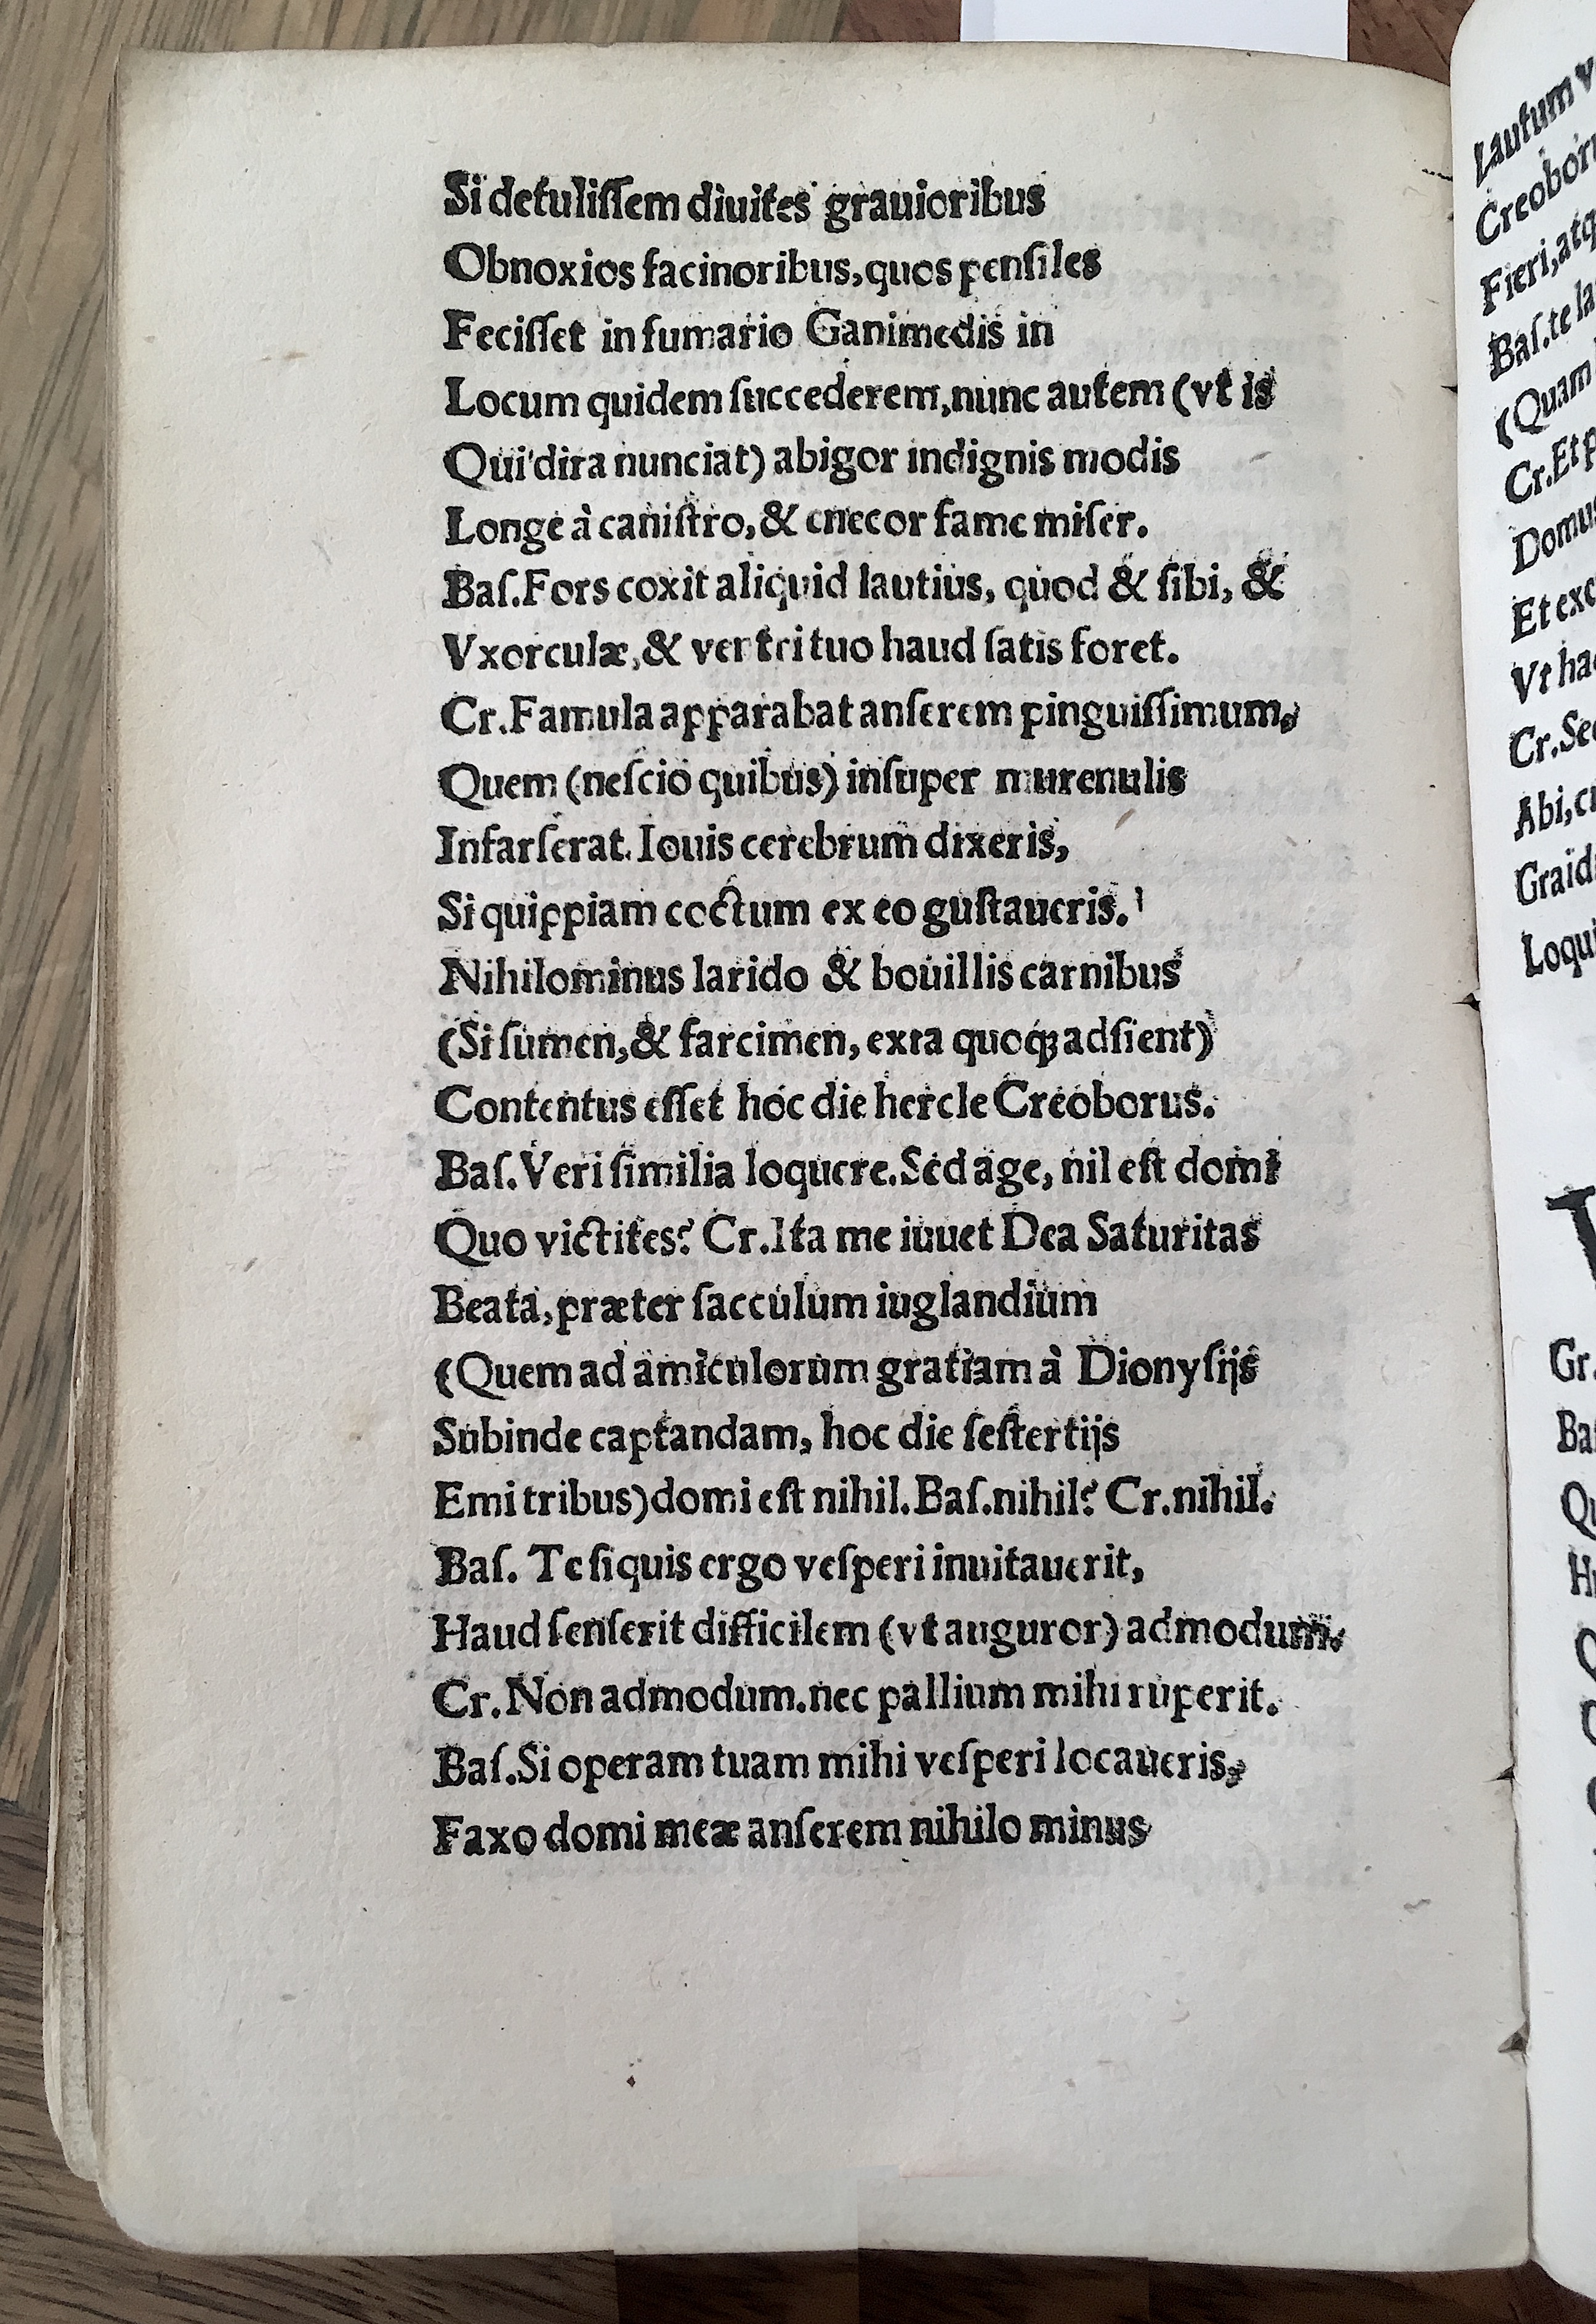 Si detuliſſem diuites grauioribus
Obnoxios facinoribus, quos penſiles
Feciſſet in fumario Ganimedis in
Locum quidem ſuccederem, nunc autem (vt is
Qui dira nunciat) abigor indignis modis
Longe à caniſtro, & enecor fame miſer.
Baſ. Fors coxit aliquid lautius, quod & ſibi, &
Vxorculæ, & ventri tuo haud ſatis foret.
Cr. Famula apparabat anſerem pinguiſſimum,
Quem (neſcio quibus) inſuper murenulis
Infarſerat. Iouis cerebrum dixeris,
Si quippiam coctum ex eo guſtaueris.
Nihilominus larido & bouillis carnibus
(Si ſumen, & farcimen, exta quoqꝫ adſient)
Contentus eſſet hoc die hercle Creoborus.
Baſ. Veri ſimilia loquere. Sed age, nil eſt domi
Quo victites? Cr. Ita me iuuet Dea Saturitas
Beata, præter ſacculum iuglandium
(Quem ad amiculorum gratiam à Dionyſijs
Subinde captandam, hoc die ſeſtertijs
Emi tribus) domi eſt nihil. Baſ. nihil? Cr. nihil.
Baſ. Te ſiquis ergo veſperi inuitauerit,
Haud ſenſerit difficilem (vt auguror) admodum.
Cr. Non admodum. nec pallium mihi ruperit.
Baſ. Si operam tuam mihi veſperi locaueris,
Faxo domi meæ anſerem nihilo minus
Lautum
Fieri, atq
Baſ. te
(Quam
Cr. Et
Et
Vt
Cr.
Abi,
Gr.